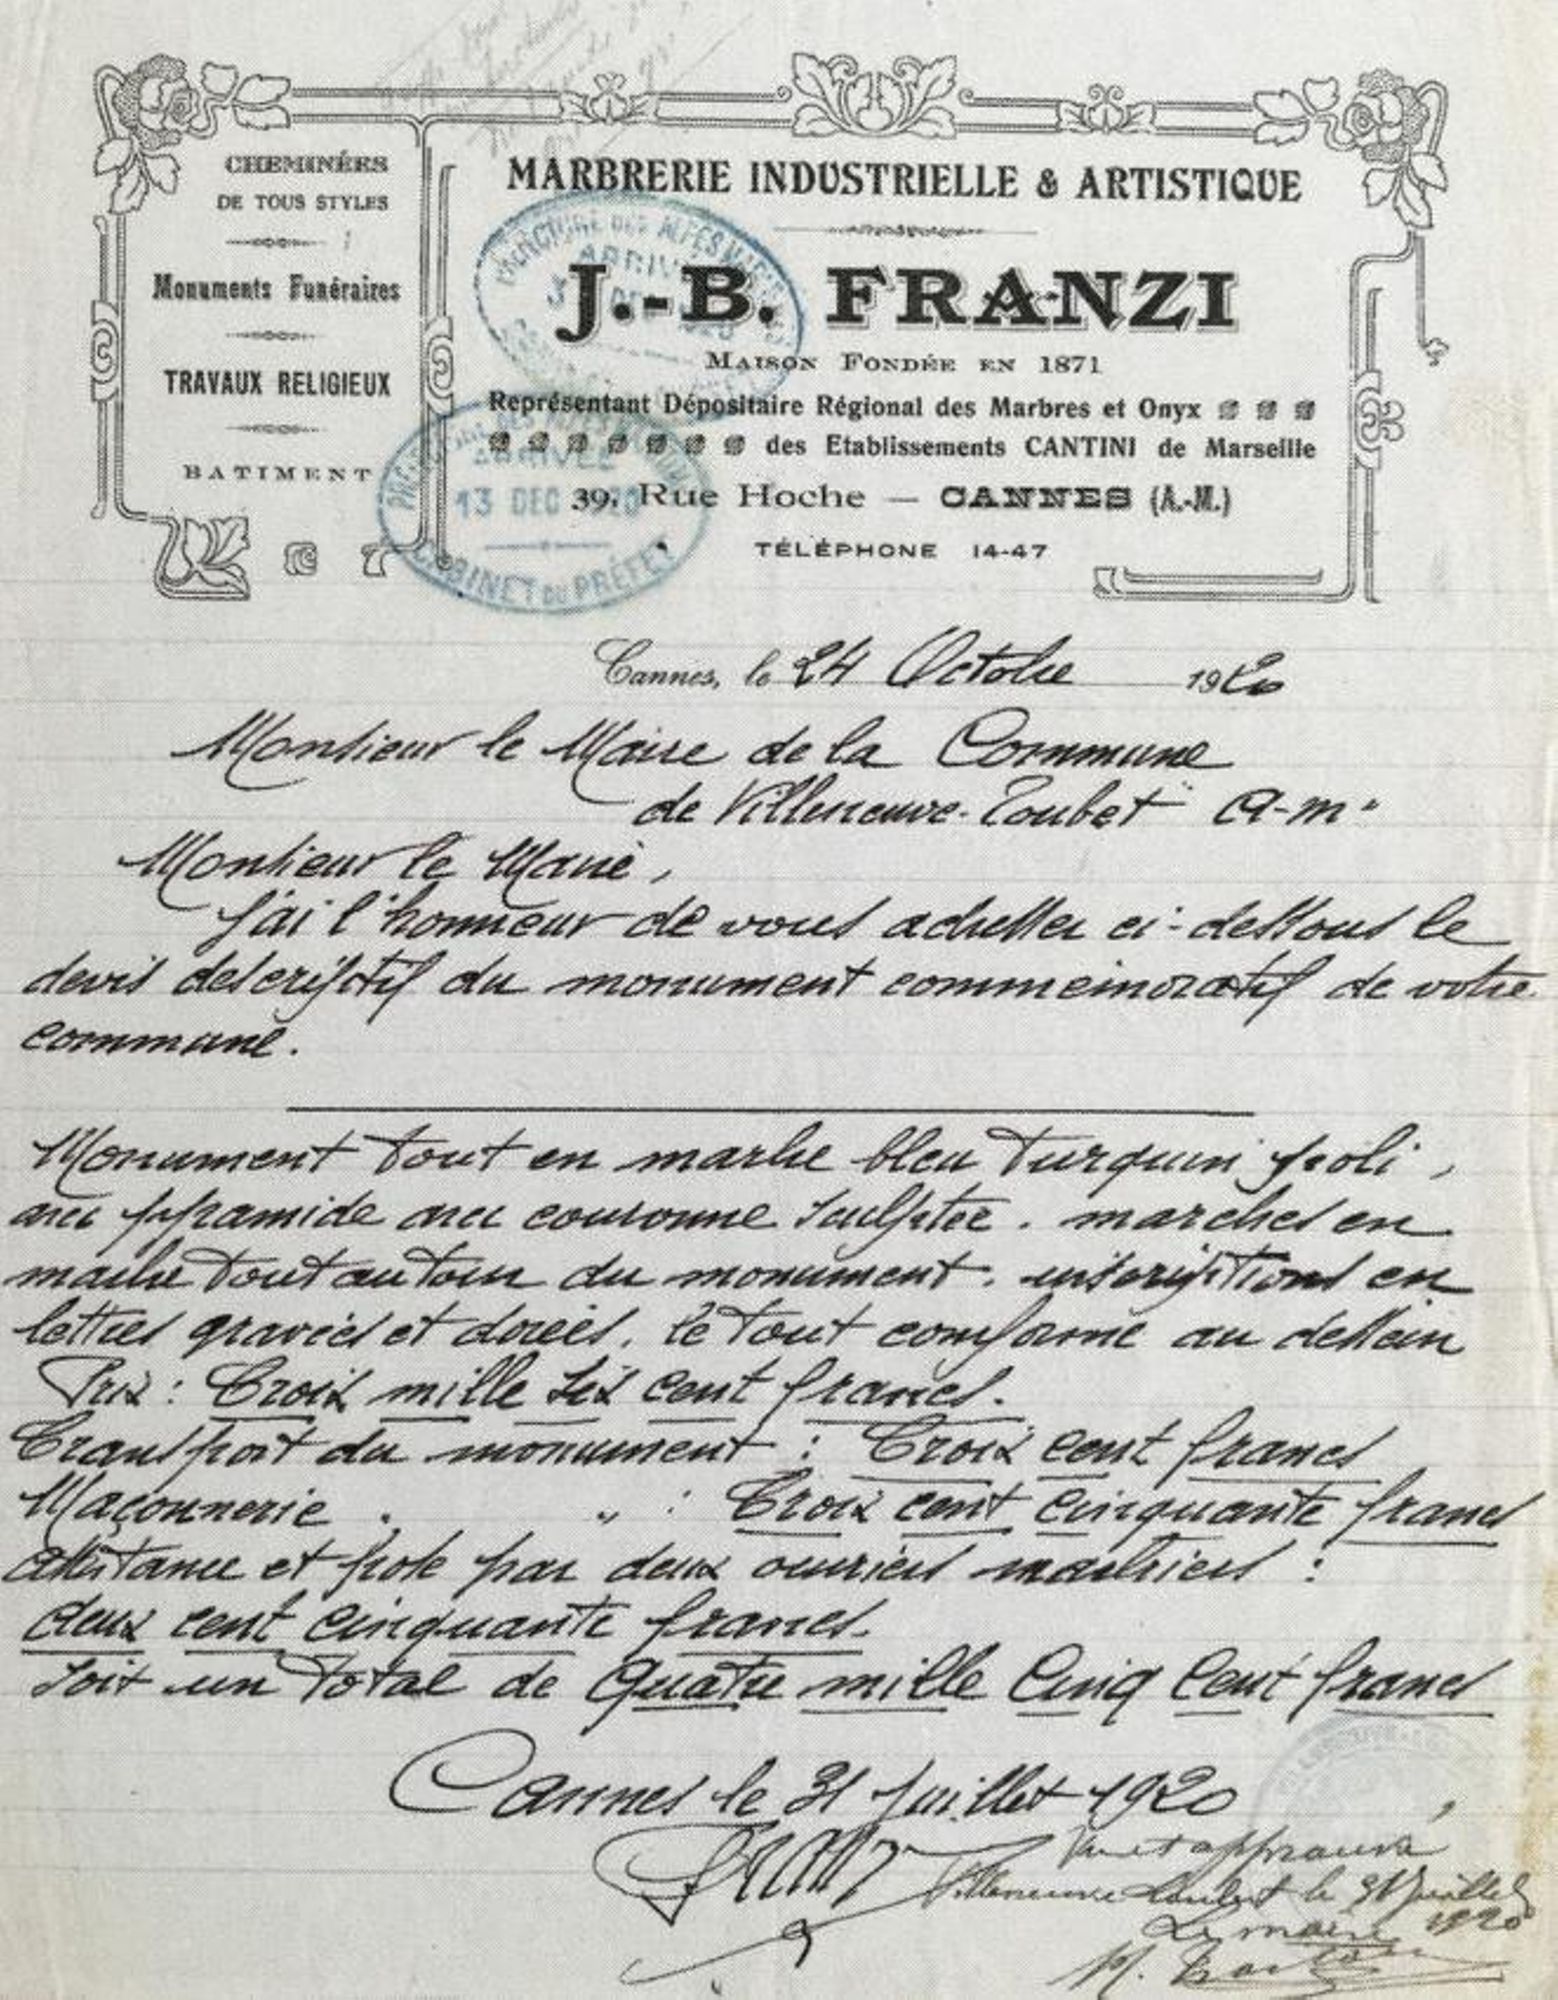 CHEMINÉES
DE TOUS STYLES
Monuments Funéraires
TRAVAUX RELIGIEUX
BATIMENT
MARBRERIE INDUSTRIELLE & ARTISTIQUE
J.-B. FRANZI
MAISON FONDÉE EN 1871
Représentant Dépositaire Régional des Marbres et Onyx
des Etablissements CANTINI de Marseille
39, Rue Hoche — CANNES (A.-M.)
TÉLÉPHONE 14-47
PRÉFECTURE DES ALPES MARITIMES
ARRIVÉE
ARRIVÉE
13 DEC 1920
CABINET DU PRÉFET
Cannes, le 24 Octobre 1920
Monsieur le Maire de la Commune
de Villeneuve-Loubet A-M.
Monsieur le Maire,
J'ai l'honneur de vous adresser ci-dessous le
devis descriptif du monument commémoratif de votre
commune.
Monument tout en marbre bleu Turquin poli,
avec pyramide avec couronne sculptée. marches en
marbre tout autour du monument. inscriptions en
lettres gravées et dorées. le tout conforme au dessein
Prix : Trois mille six cent francs.
Transport du monument : Trois cent francs
Maçonnerie . " : Trois cent cinquante francs
assistance et pose par deux ouvriers marbriers :
deux cent cinquante francs.
soit un total de Quatre mille Cinq Cent francs
Cannes le 31 Juillet 1920
Franzi
Vu et approuvé
Villeneuve Loubet le 31 Juillet
1920
Le maire
M.